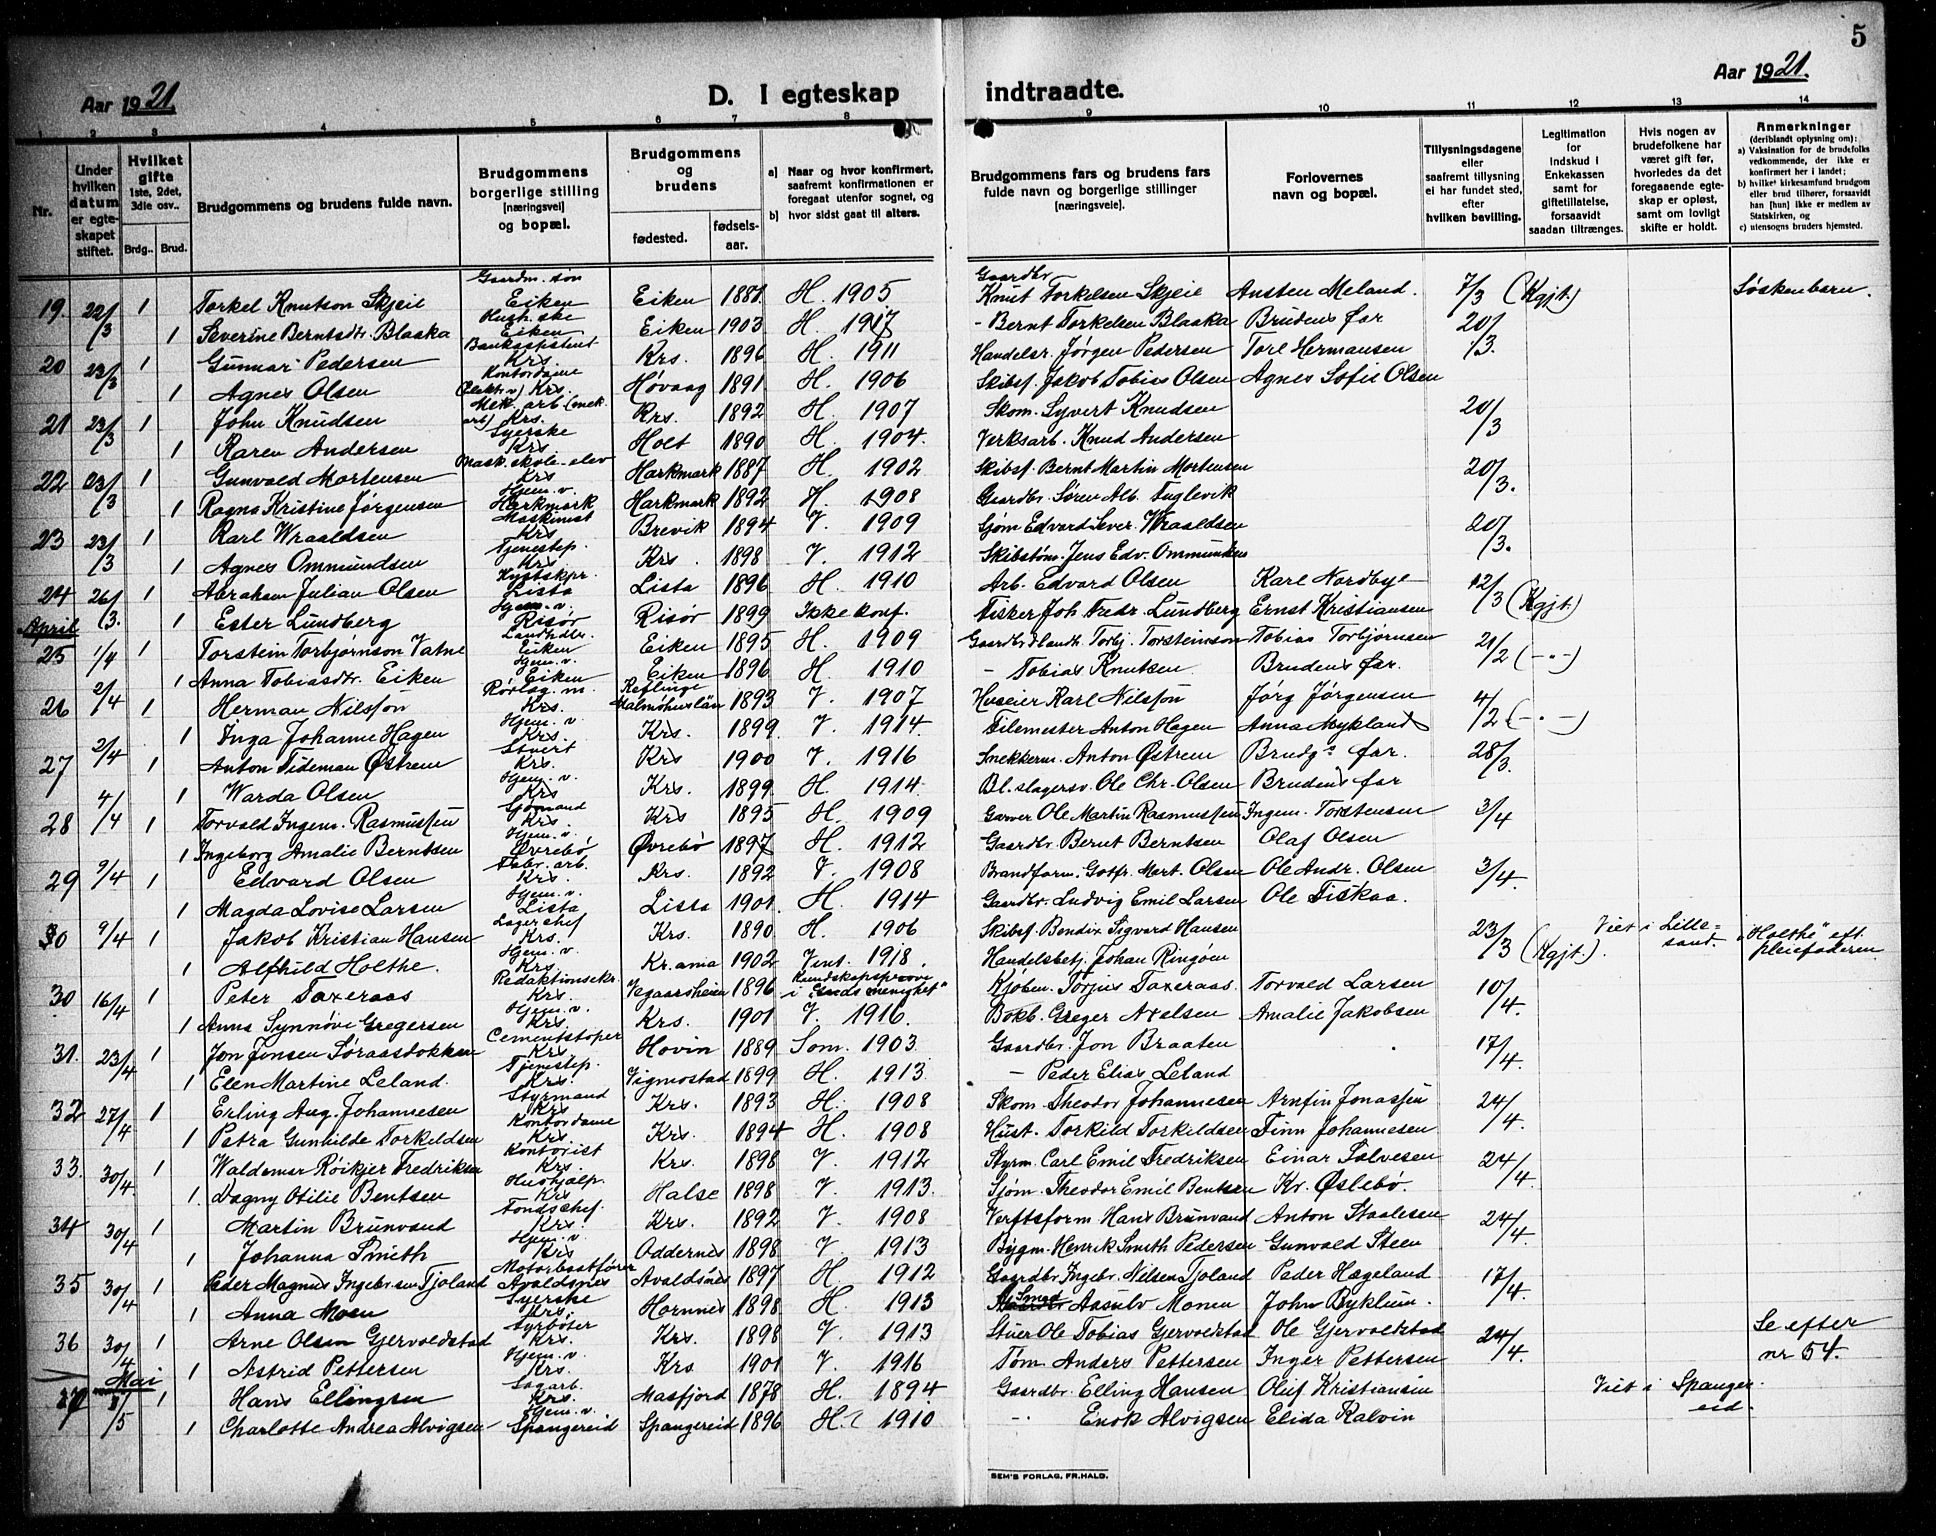 5
Aar 1921
D. I egteskap indtraadte.
Aar 1921.
1 2 3 4 5 6 7 8 9 10 11 12 13 14
Nr.
Under hvilken datum er egteskapet stiftet.
Hvilket gifte 1ste, 2det, 3die osv.. Brdg.. Brud.
Brudgommens og brudens fulde navn.
Brudgommens borgerlige stilling [næringsvei] og bopæl.
Brudgommens og brudens fødested. fødselsaar.
a) Naar og hvor konfirmert, saafremt konfirmationen er foregaat utenfor sognet, og
b) hvor sidst gaat til alters.
Brudgommens fars og brudens fars fulde navn og borgerlige stillinger [næringsveie].
Forlovernes navn og bopæl.
Tillysningsdagene eller saafremt tillysning ei har fundet sted, efter hvilken bevilling.
Legitimation for Indskud i Enkekassen samt for giftetillatelse, forsaavidt saadan tiltrænges.
Hvis nogen av brudefolkene har været gift før, hvorledes da det foregaaende egteskap er opløst, samt om lovligt skifte er holdt.
Anmerkninger (deriblandt oplysning om): a) Vaksination for de brudefolks vedkommende, der ikke er konfirmert her i landet; b) hvilket kirkesamfund brudgom eller brud tilhører, forsaavidt han [hun] ikke er medlem av Statskirken, og c) utensogns bruders hjemsted.
19. 22/3 1 Torkel Knutson Skjeie Gaardm. søn Eiken Eiken 1881 H. 1905 Gaardbr Knut Torkelsen Skjeie Austen Meland. 7/3 (Kgjt.) Søskenbarn.
1 Severine Berntsdtr. Blaaka Eiken Eiken 1903 H. 1917 - Bernt Torkelsen Blaaka Brudens far 20/3.
20 23/3 1 Gunnar Pedersen Krs. Krs. 1896 H. 1911 Handelsr. Jørgen Pedersen Torl Hermansen
1 Agnes Olsen Kontordame Krs. Høvaag 1891 H. 1906 Skibsf. Jakob Tobias Olsen Agnes Sofie Olsen
21 23/3 1 John Knudsen Mek. arb. (mek. arb) Krs. Krs. 1892 H. 1907 Skom. Syvert Knudsen 20/3
1 Karen Andersen Syerske Krs Holt 1890 H. 1904. Verksarb. Knud Andersen
22 23/3 1 Gunvald Mortensen Mask. skole-elev Krs Harkmark 1887 H. 1902 Skibsf. Bernt Martin Mortensen 20/3.
1 Ragna Kristine Jørgensen Hjem. v. Harkmark Harkmark 1892 H. 1908 Gaardbr. Søren Alb. Fuglevik
23 23/3 1 Karl Wraaldsen Maskinist Krs Brevik 1894 V. 1909 Sjøm Edvard Sever. Wraaldsen 20/3.
1 Agnes Ommundsen Tjenestep. Krs Krs. 1898 V. 1912 Skibstøm. Jens Edv. Ommundsen
24 26/3. 1 Abraham Julian Olsen Kystskpr. Lista Lista 1896 H. 1910 Arb. Edvard Olsen Karl Nordbye 12/3 (Kgjt.)
1 Ester Lundberg Hjem. v. Risør Risør 1899 Ikke konf. Fisker Joh. Fredr. Lundberg Ernst Kristiansen
April
25 1/4 1 Torstein Torbjørnson Vatne Landhdlr. Eiken Eiken 1895 H. 1909 Gaardbr. & landh. Torbj. Torsteinson Tobias Torbjørnsen 21/2 (-"-)
1 Anna Tobiasdtr. Eiken Hjem. v. Eiken Eiken 1896 H. 1910 - Tobias Knutsen Brudens far.
26 2/4 1 Herman Nilsson Rørlag. m. Krs. Reslinge Malmøhuslän 1893 V. 1907 Huseier Karl Nilsson Jørg Jørgensen 4/2 (-"-)
1 Inga Johanne Hagen Hjem. v. Krs. Krs. 1899 V. 1914. Filemester Anton Hagen Anna Mykland
27 2/4 1 Anton Tideman Østrem Stuert Krs. Krs 1900 V. 1916 Snekkerm. Anton Østrem Brudgs far. 28/3.
1 Warda Olsen Hjem. v. Krs Krs. 1899 H. 1914. Bl.slagersv. Ole Chr. Olsen Brudens far
28 4/4 1 Torvald Ingem. Rasmussen Sjømand Krs. Krs 1895 H. 1909 Garver Ole Martin Rasmussen Ingem. Torstensen 3/4
1 Ingeborg Amalie Berntsen Hjem. v. Øvrebø Øvrebø 1897 H. 1912 Gaardbr. Bernt Berntsen Olaf Olsen
29 9/4 1 Edvard Olsen Fabr. arb. Krs. Krs. 1892 V. 1908 Brandform. Gotfr. Mart. Olsen Ole Andr. Olsen 3/4.
1 Magda Lovise Larsen Hjem. v. Lista Lista 1901 H. 1914 Gaardbr. Ludvig Emil Larsen Ole Fiskaa.
30 9/4 1 Jakob Kristian Hansen Lagerchef Krs. Krs. 1890 H. 1906 Skibsf. Bendix Sigvard Hansen 23/3 (Kgjt.) Viet i Lillesand. "Holthe" eft. pleiefaderen
1 Alfhild Holthe. Hjem. v. Krs. Kr.ania 1902 Vint. 1918. Handelsbetj. Johan Ringøen
30 16/4 1 Peter Taxeraas Redaktionssekr. Krs. Vegaarsheien 1896 Kundskapsprøve i "Guds menighet" Kjøbm. Torjus Taxeraas. Torvald Larsen 10/4.
1 Anna Synnøve Gregersen Hjem. v. Krs. Krs. 1901 V. 1916. Bokb. Greger Axelsen Amalie Jakobsen
31. 23/4 1 Jon Jonsen Søraasdokken Cementstøper Krs. Hovin 1889 Som. 1903. Gaardbr. Jon Braaten 17/4.
1 Elen Martine Leland. Tjenestep. Krs. Vigmostad 1899 H. 1913. - Peder Elias Leland
32 27/4 1 Erling Aug. Johannesen Styrmand Krs Krs. 1893 H. 1908 Skom Theodor Johannesen Arnfin Jonassen 24/4.
1 Petra Gunhilde Torkildsen Kontordame Krs. Krs. 1894 H. 1908 Hust. Torkild Torkildsen Finn Johannesen
33. 30/4 1 Waldemar Røikjer Fredriksen Kontorist Krs. Krs. 1898 V. 1912 Styrm. Carl Emil Fredriksen Einar Salvesen 24/4.
1. Dagny Otilie Bentsen Hushjælp. Krs Halse 1898 V. 1913. Sjøm. Theodor Emil Bentsen Kr. Øslebø.
34 30/4 1 Martin Brunvand Fondschef. Krs. Krs. 1892 V. 1908 Verftsform Hans Brunvand Anton Staalesen 24/4.
1 Johanna Smith Hjem. v. Krs Oddernes 1898 V. 1913 Bygm. Henrik Smith Pedersen Gunvald Steen
35 30/4 1 Peder Magnus Ingebr.sen Tjoland Motorbaatfører Avaldsnes Avaldsnes 1897 H. 1912 Gaardbr Ingebr. Nilsen Tjoland Peder Hægeland 17/4.
1 Anna Moen Syerske Krs. Hornnes 1898 H. 1913 Smed Aasulv Monen John Byklum.
36 30/4 1 Arne Olsen Gjervoldstad Fyrbøter Krs. Krs. 1898 V. 1913 Stuer Ole Tobias Gjervoldstad Ole Gjervoldstad 24/4. Se efter nr 54.
1 Astrid Pettersen Hjem. v. Krs. Krs 1901 V. 1916 Tøm. Anders Pettersen Inger Pettersen
Mai
37 /5 1 Hans Ellingsen Sagarb. Krs. Masfjord 1878 H. 1894 Gaardbr. Elling Hansen Oluf Kristiansen Viet i Spangereid.
1 Charlotte Andrea Alvigsen Hjem. v. Spangereid Spangereid 1896 H. 1910 -"- Enok Alvigsen Elida Kalvin
SEM'S FORLAG, FR.HALD.